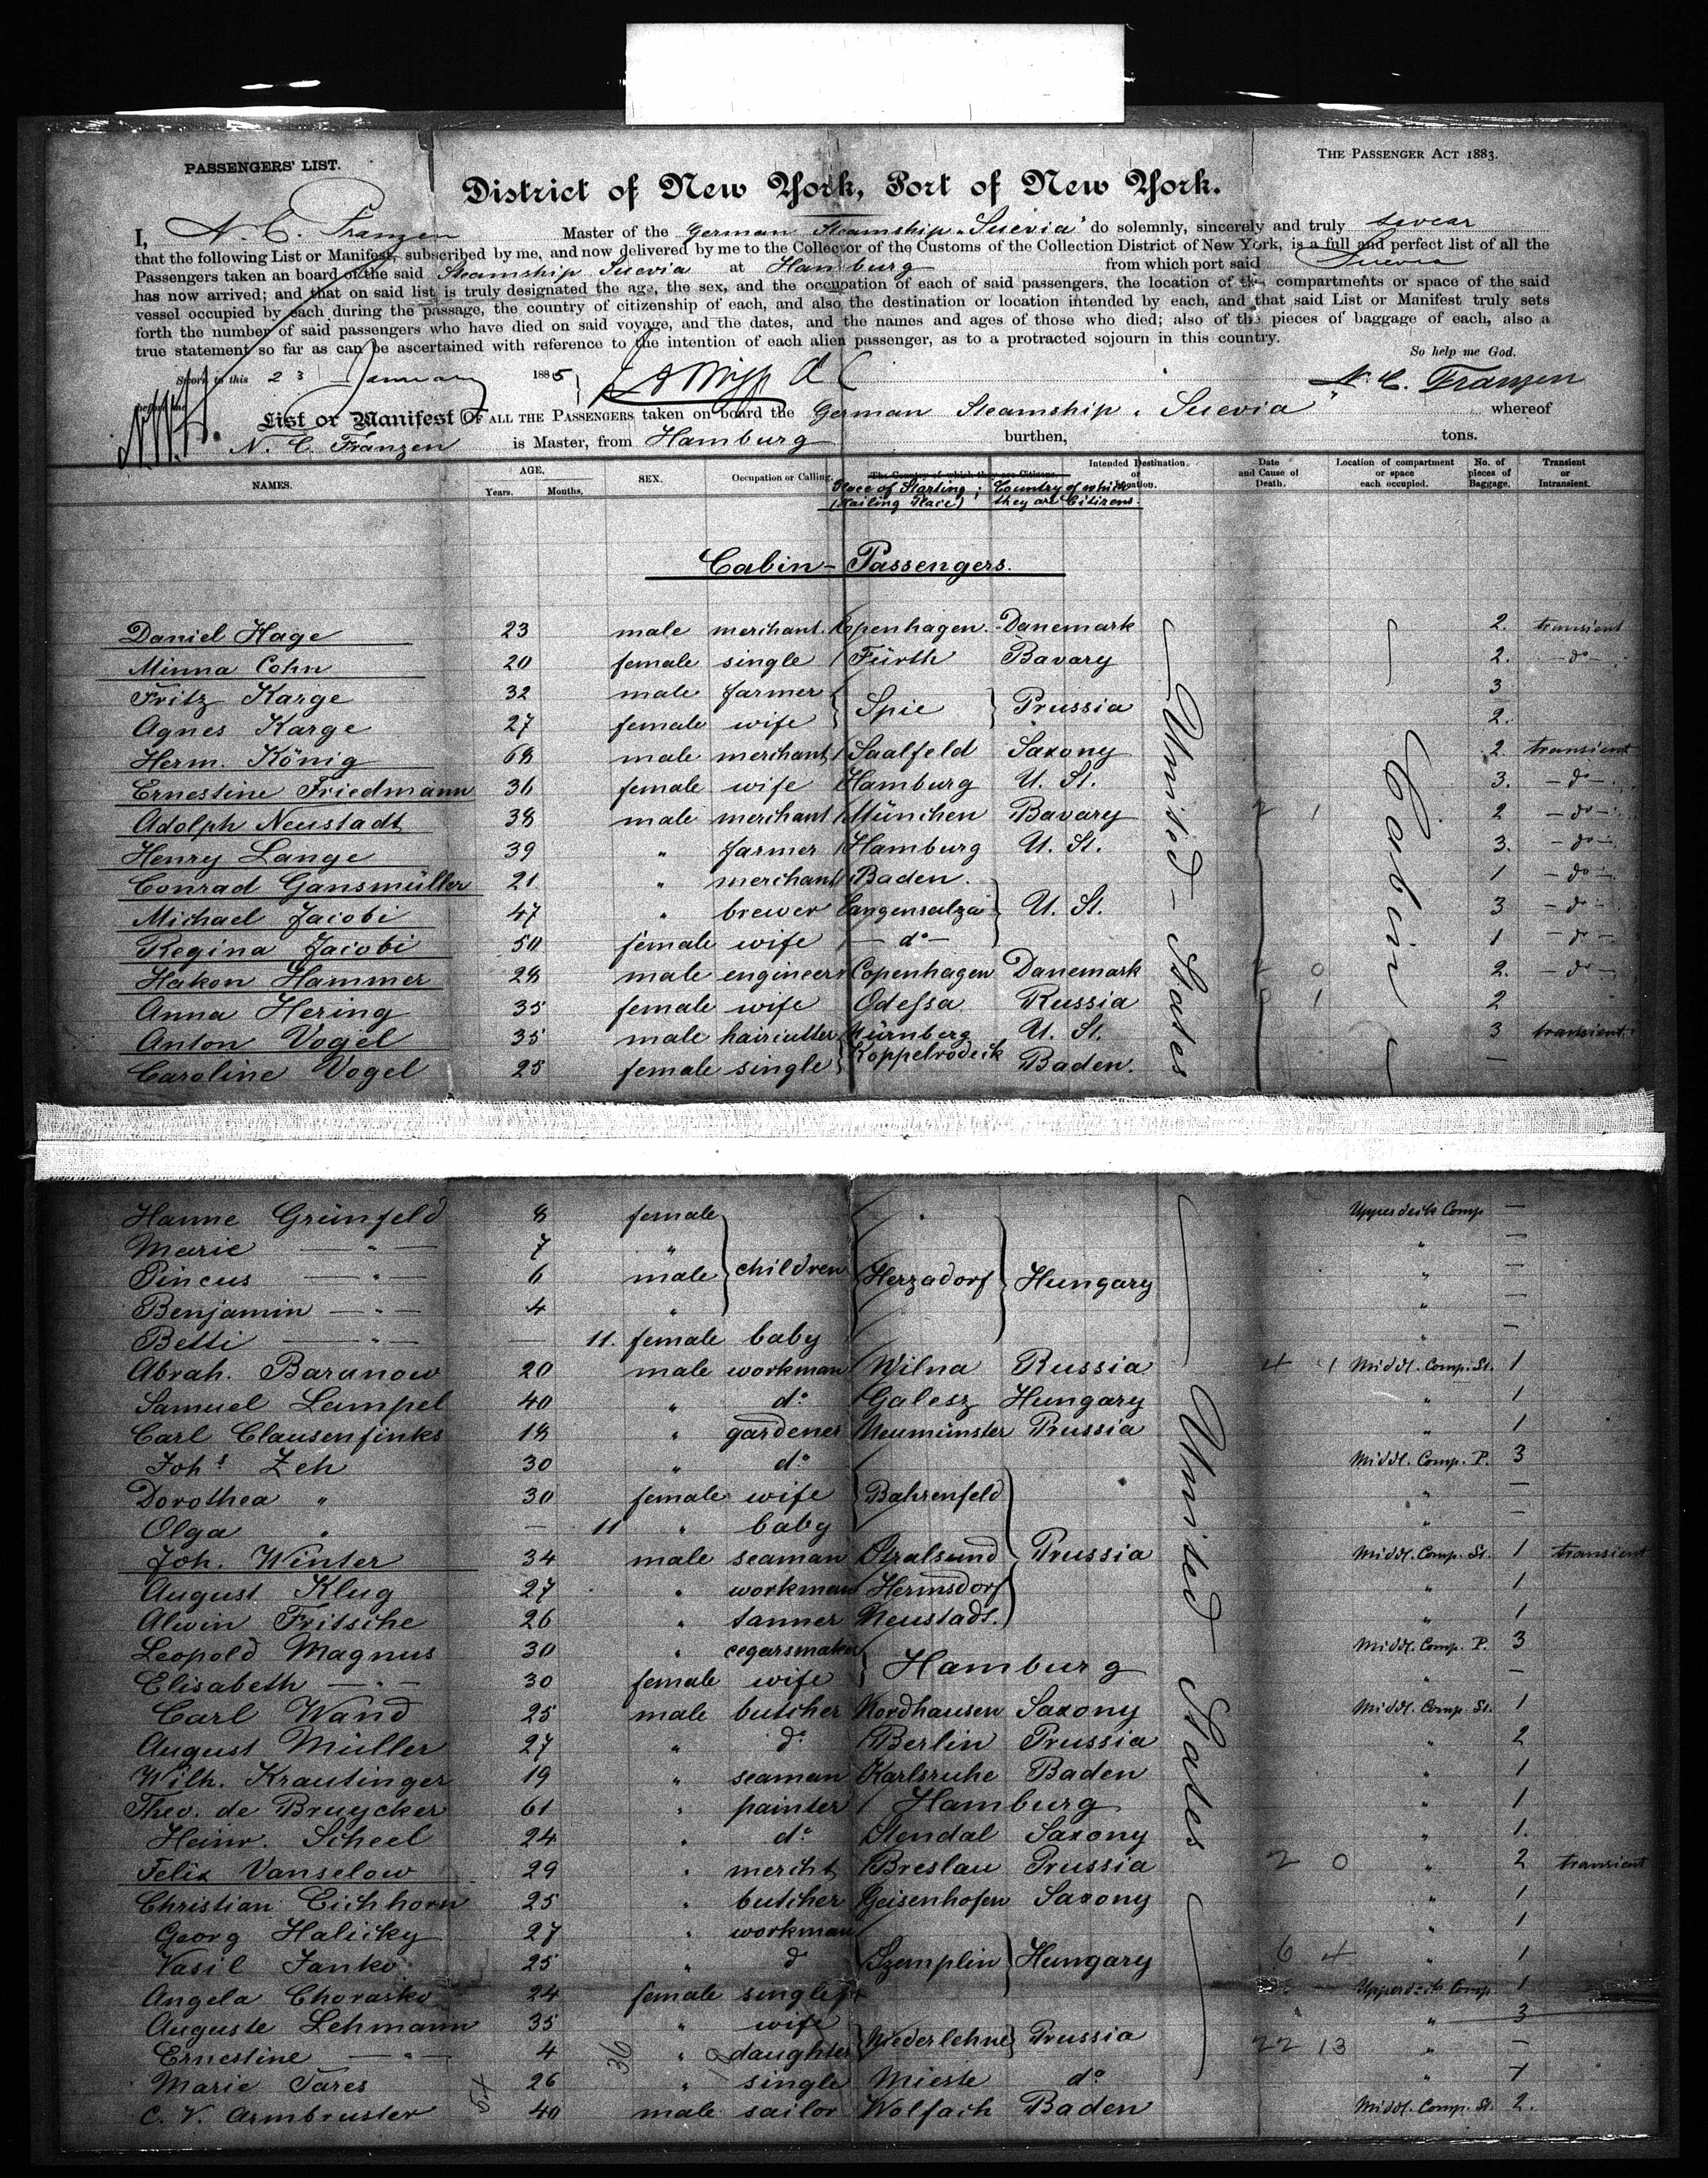 PASSENGERS' LIST.
THE PASSENGER ACT 1883.
District of New York, Port of New York.
I, N. C. Franzen Master of the German Steamship "Suevia" do solemnly, sincerely and truly swear
that the following List or Manifest, subscribed by me, and now delivered by me to the Collector of the Customs of the Collection District of New York, is a full and perfect list of all the
Passengers taken an board of the said Steamship Suevia at Hamburg from which port said Suevia
has now arrived; and that on said list is truly designated the age, the sex, and the occupation of each of said passengers, the location of the compartments or space of the said
vessel occupied by each during the passage, the country of citizenship of each, and also the destination or location intended by each, and that said List or Manifest truly sets
forth the number of said passengers who have died on said voyage, and the dates, and the names and ages of those who died; also of the pieces of baggage of each, also a
true statement so far as can be ascertained with reference to the intention of each alien passenger, as to a protracted sojourn in this country.
So help me God.
Sworn to this 23 January 1885
N. C. Franzen
before me
List or Manifest OF ALL THE PASSENGERS taken on board the German Steamship "Suevia" whereof
N. C. Franzen is Master, from Hamburg burthen, tons.
NAMES. AGE. Years. Months. SEX. Occupation or Calling. The Country of which they are Citizens. Place of Starting; (Mailing Place) Country of which they are Citizens. Intended Destination. or Location. Date and Cause of Death. Location of compartment or space each occupied. No. of pieces of Baggage. Transient or Intransient.
Cabin - Passengers.
Daniel Hage 23 male merchant Copenhagen Danemark 2. transient
Minna Cohn 20 female single Fürth Bavary 2. - do -
Fritz Karge 32 male farmer Spie Prussia 3
Agnes Karge 27 female wife 2.
Herm. König 68 male merchant Saalfeld Saxony 2. transient
Ernestine Friedmann 36 female wife Hamburg U. St. 3. - do -
Adolph Neustadt 38 male merchant München Bavary 2 1 2 - do -
Henry Lange 39 " farmer Hamburg U. St. 3. - do -
Conrad Gansmüller 21 " merchant Baden. 1 - do -
Michael Jacobi 47 " brewer Langensalza U. St. 3 - do -
Regina Jacobi 50 female wife - do - 1 - do -
Hakon Hammer 28 male engineer Copenhagen Danemark 0 2. - do -
Anna Hering 35 female wife Odessa Russia 1 2
Anton Vogel 35 male haircutter Nürnberg U. St. 3 transient
Caroline Vogel 25 female single Koppelrodeck Baden. -
United - States
Cabin
Hanne Grünfeld 8 female Upperdeck Comp -
Marie - " - 7 " " -
Pincus - " - 6 male children Herzadorf Hungary " -
Benjamin - " - 4 " " -
Betti - " - - 11. female baby " -
Abrah. Baranow 20 male workman Wilna Russia 4 1 Middl. Comp. St. 1
Samuel Lampel 40 " do Galesz Hungary " 1
Carl Clausenfinks 18 " gardener Neumünster Prussia " 1
Johs Zeh 30 " do Middl. Comp. P. 3
Dorothea " 30 female wife Bahrenfeld " -
Olga " - 11 " baby "
Joh. Winter 34 male seaman Stralsund Prussia Middl. Comp. St. 1 transient
August Klug 27 " workman Hermsdorf " 1
Alwin Fritsche 26 " tanner Neustadt. " 1
Leopold Magnus 30 " cegarsmaker Hamburg Middl. Comp. P. 3
Elisabeth - " - 30 female wife " -
Carl Wand 25 male butcher Nordhausen Saxony Middl. Comp. St. 1
August Müller 27 " do Berlin Prussia " 2
Wilh. Krautinger 19 " seaman Karlsruhe Baden " 1
Theo. de Bruycker 61 " painter Hamburg " 1
Heinr. Scheel 24 " do Stendal Saxony " 1.
Felix Vanselow 29 " mercht Breslau Prussia 2 0 " 2 transient
Christian Eichhorn 25 " butcher Geisenhofen Saxony " 1
Georg Halicky 27 " workman " 1
Vasil Janko 25 " do Szemplin Hungary 6 4 " 1
Angela Chorasko 24 female single Upperdeck Comp. 1
Auguste Lehmann 35 " wife " 3
Ernestine - " - 4 " daughter Niederlehne Prussia 22 13 " -
Marie Tares 26 " single Mieste do " 1
C. V. Armbruster 40 male sailor Wolfach Baden Middl. Comp. St. 2.
United - States
36